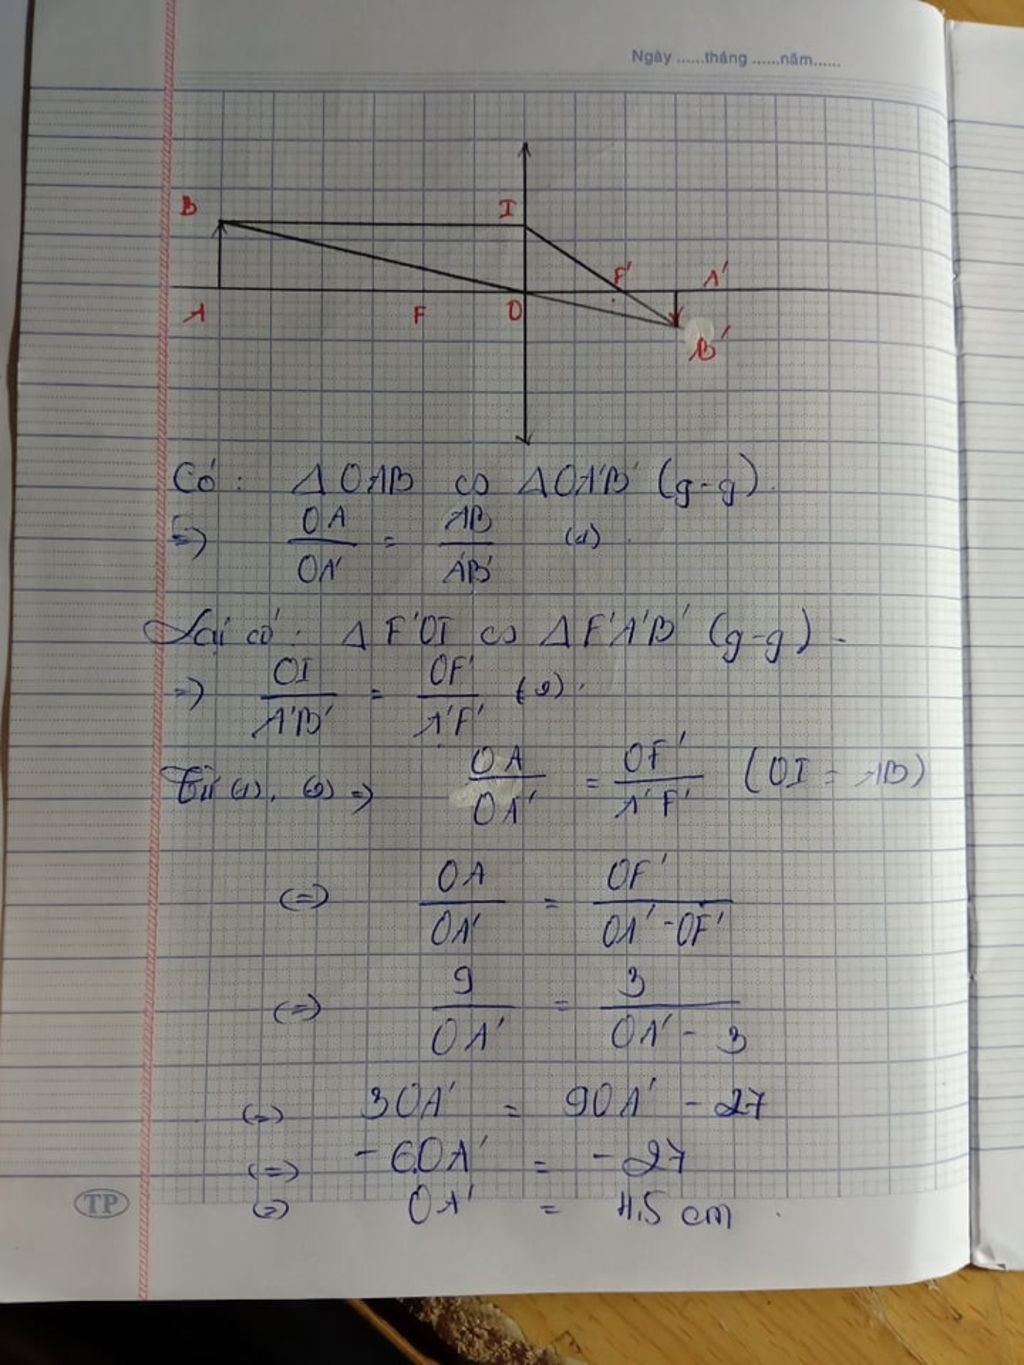 Ngày ......tháng ......năm......
B I
F' A'
A F O
B'
Có: Δ OAB ∽ Δ OA'B' (g-g).
=> OA/OA' = AB/A'B' (1).
Lại có: Δ F'OI ∽ Δ F'A'B' (g-g).
=> OI/A'B' = OF'/A'F' (2).
Từ (1), (2) => OA/OA' = OF'/A'F' (OI = AB)
(=) OA/OA' = OF'/OA'-OF'
(=) 9/OA' = 3/OA' - 3
(=) 3OA' = 9OA' - 27
(=) -6OA' = -27
(=) OA' = 4.5 cm.
TP